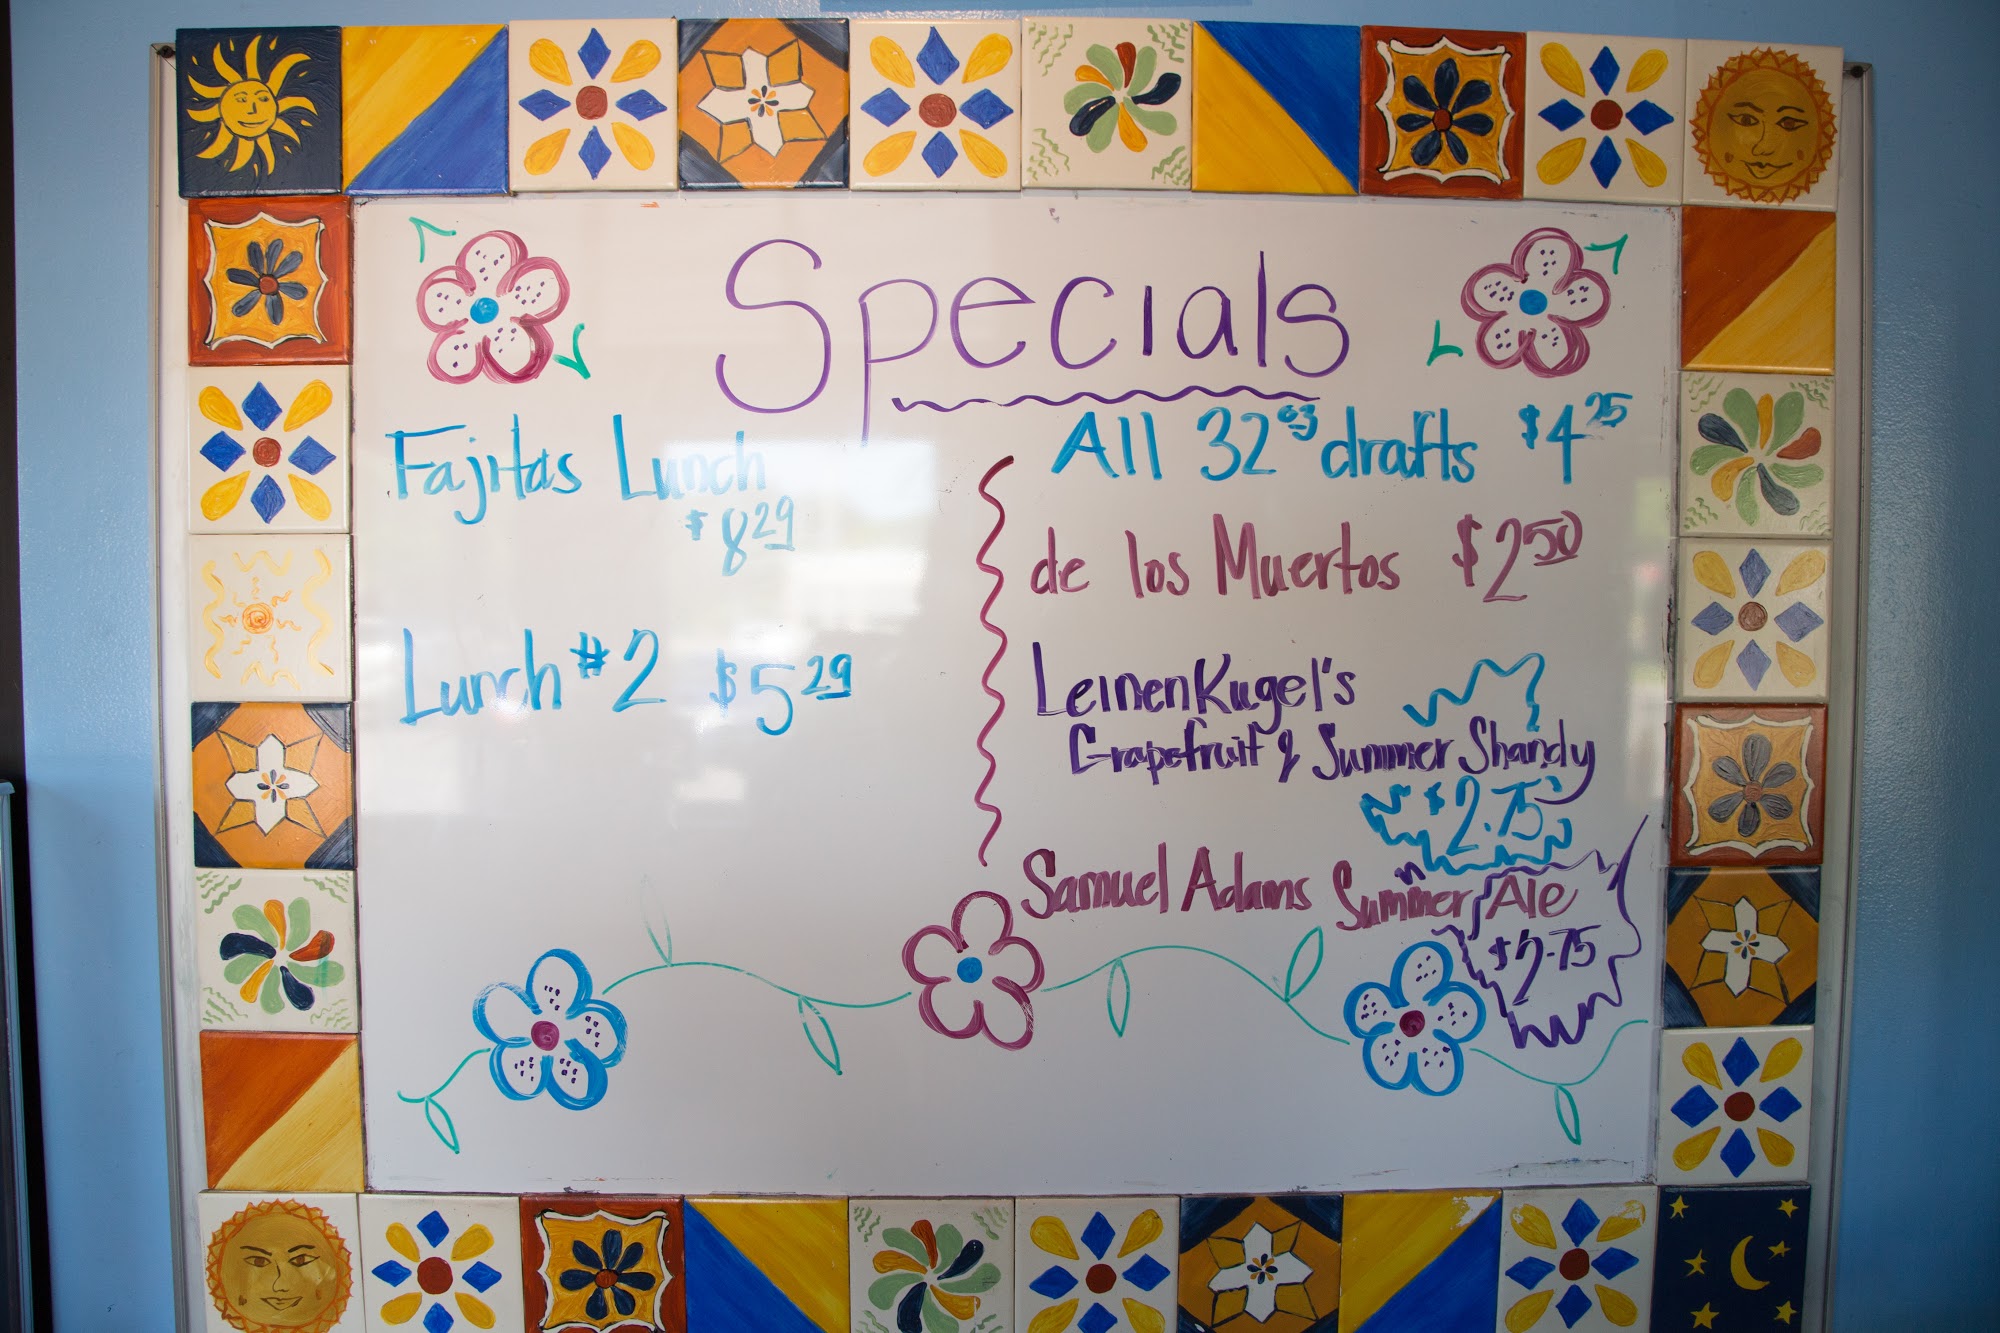 Specials
Fajitas Lunch
$8 29
Lunch #2 $5 29
All 32 oz drafts $4 25
de los Muertos $2 50
LeinenKugel's
Grapefruit & Summer Shandy
$2.75
Samuel Adams Summer Ale
$2.75